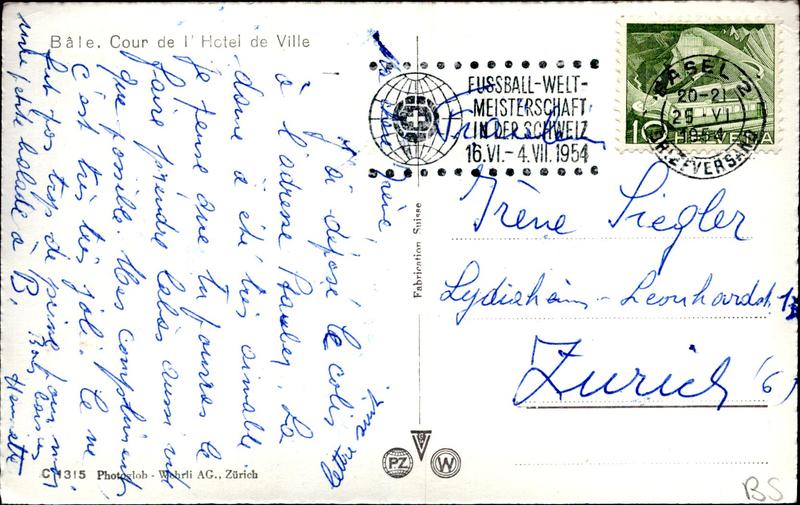 Bâle. Cour de l'Hotel de Ville
Ma chère Irène,
J'ai déposé le colis
à l'adresse Stauber. La
dame a été très aimable.
Je pense que tu pourras le
faire prendre là bas aussi vite
que possible. Mes compliments
C'est très très joli. Ce ne
fut pas trop de peine pour moi
une petite balade à B. Bons baisers
Henriette
C 1315 Photoglob - Wehrli AG., Zürich
Fabrication Suisse
PZ
W
FUSSBALL-WELT-
MEISTERSCHAFT
IN DER SCHWEIZ
16.VI.-4.VII.1954
BASEL 2
20-21
25.VI
1954
BRIEFVERSAND
10 HELVETIA
Fräulein
Irène Siegler
Lydiaheim - Leonhardstr.
Zürich (6)
BS